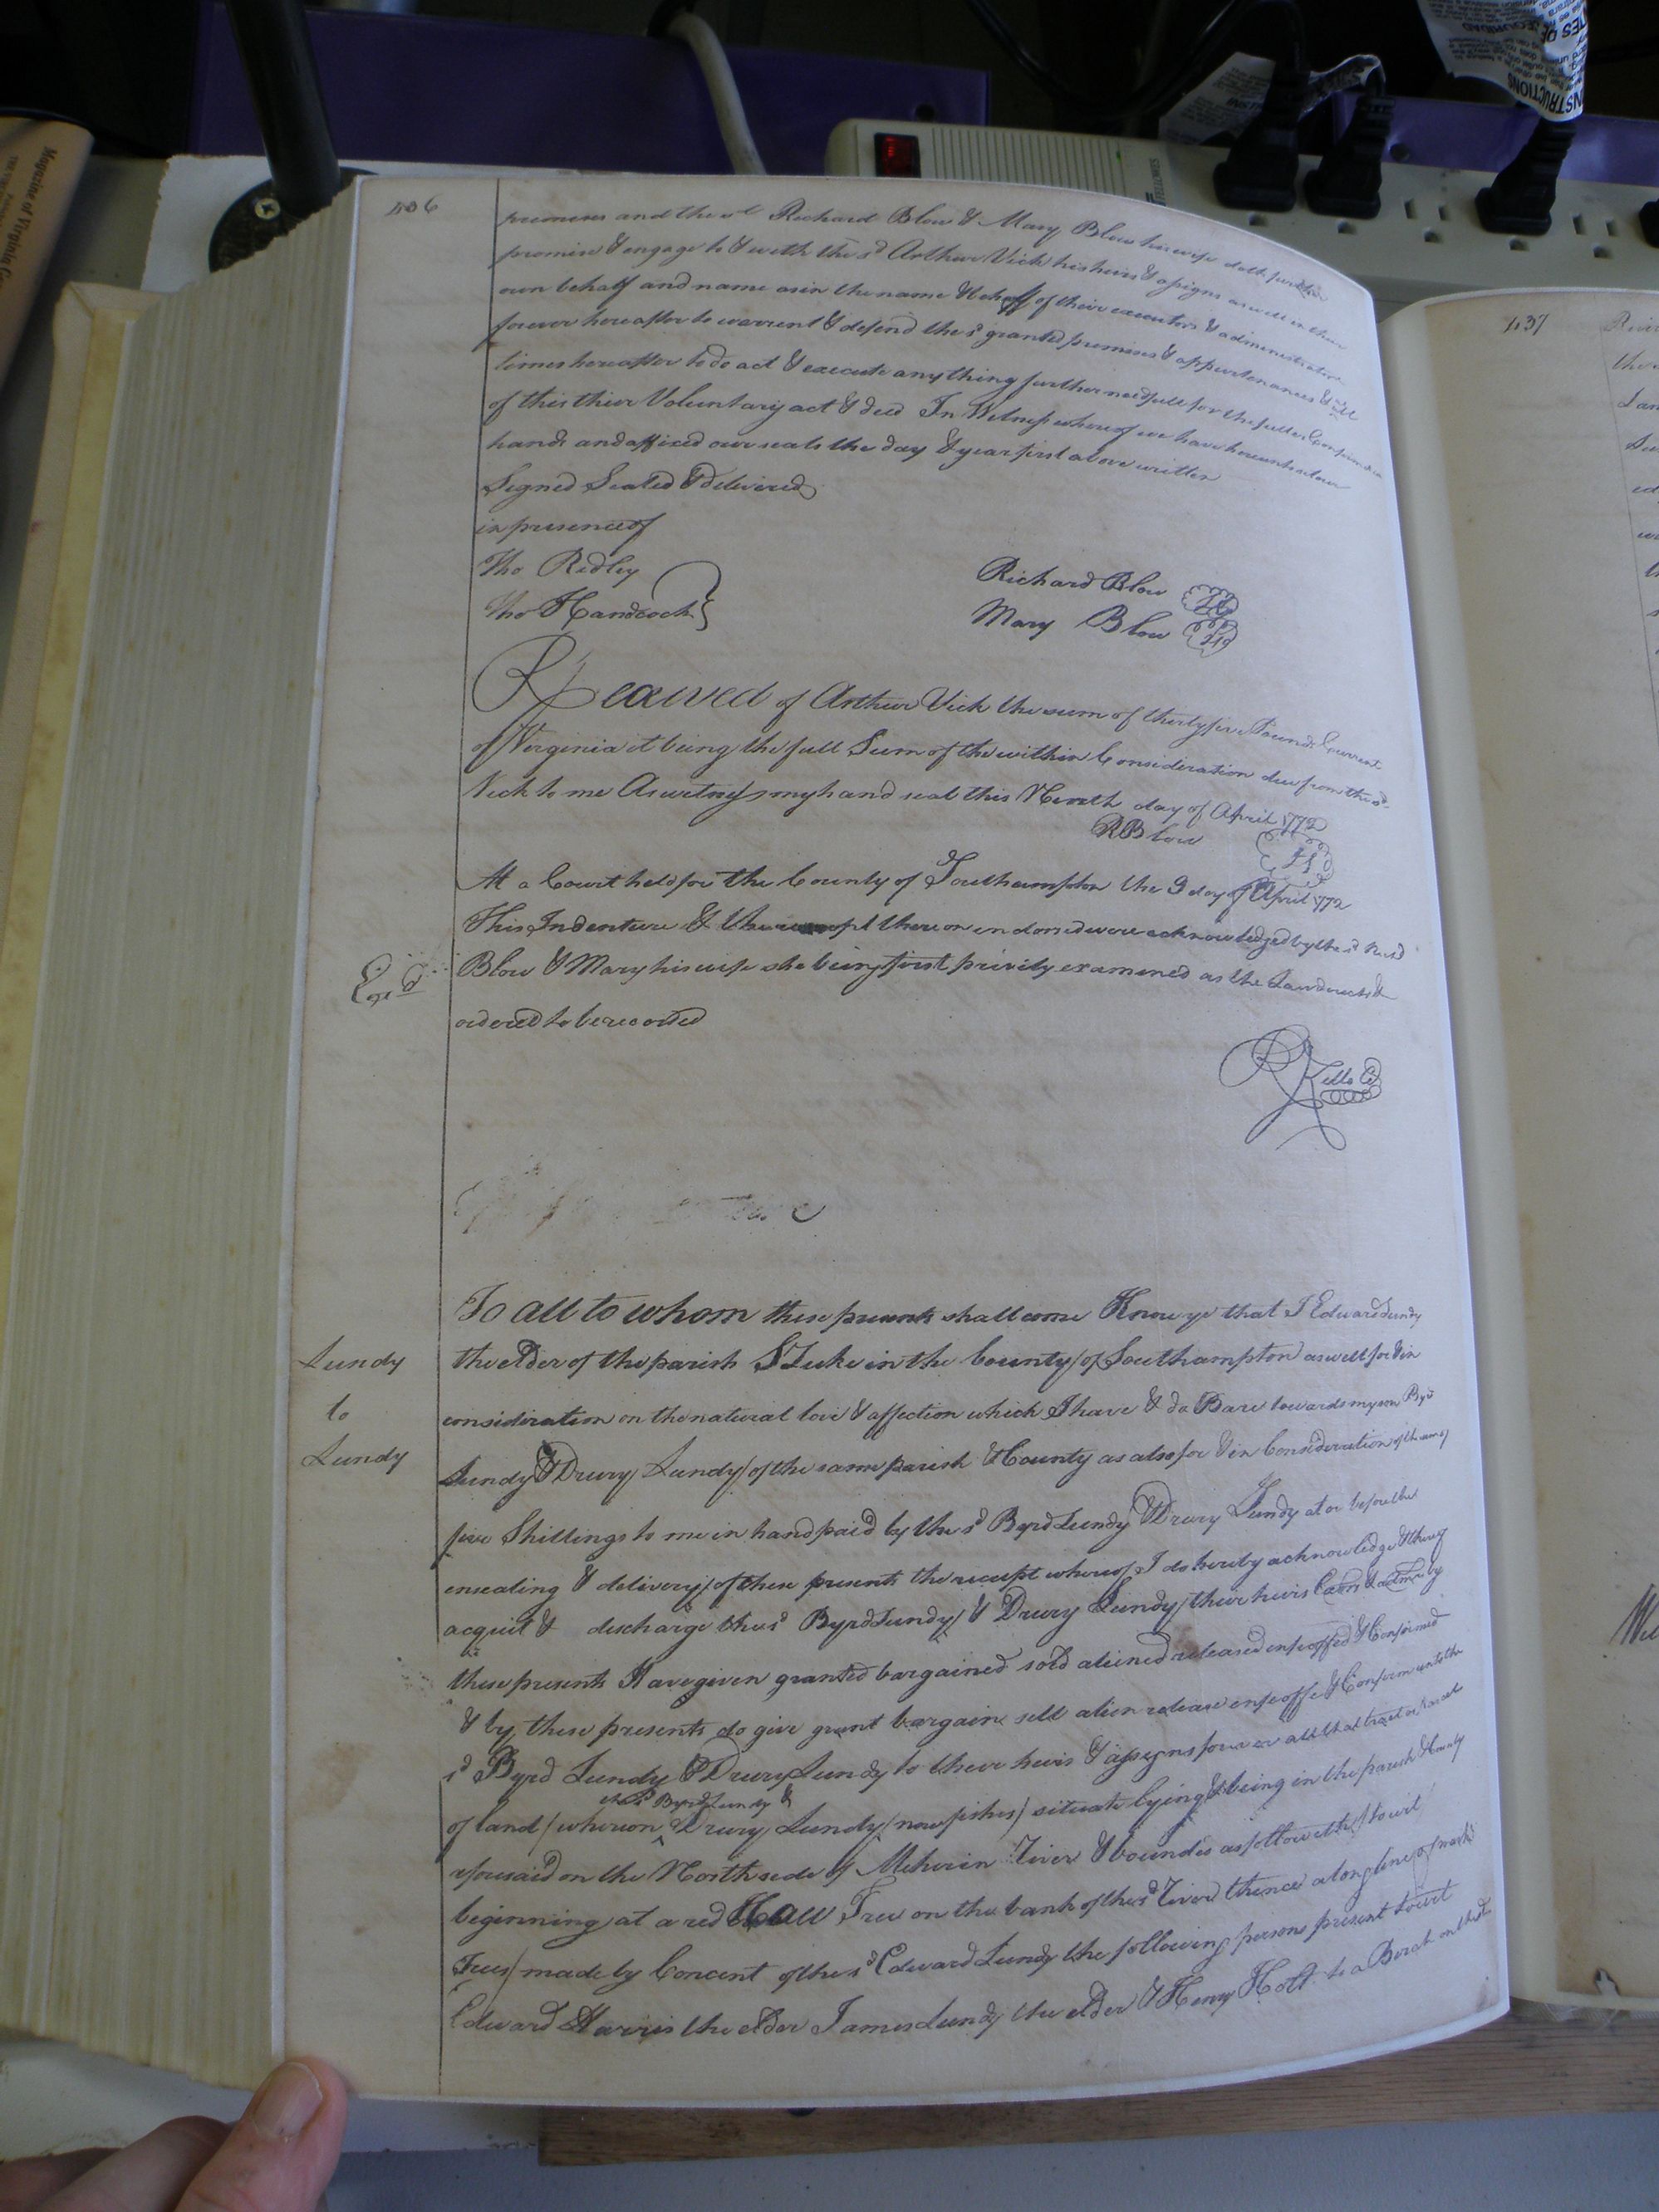 436
premises and the sd Richard Blow & Mary Blow his wife doth further
promise & engage to & with the sd Arthur Vick his heirs & assigns as well in their
own behalf and name as in the name & behalf of their executors & administrators
forever hereafter to warrent & defend the sd granted premises & appurtenances & at all
times hereafter to do act & execute any thing further needfull for the fuller
of this thier Voluntary act & deed In Witness whereof we have hereunto set our
hands and affixed our seals the day & year first above written
Signed Sealed & delivered
in presence of
Tho Ridley
Tho Handcock
Richard Blow LS
Mary Blow LS
Received of Arthur Vick the sum of thirty five Pounds Current
of Virginia it being the full Sum of the within Consideration due from the sd
Vick to me As witness my hand seal this Ninth day of April 1772
R Blow LS
At a Court held for the County of Southampton the 9 day of April 1772
This Indenture & the receipt thereon endorsed were acknowledged by the sd Richd
Blow & Mary his wife she being first privily examined as the Law directs &
Exd
ordered to be recorded
R Kello Ck
To all to whom these presents shall come Know ye that I Edward Lundy
Lundy
the elder of the parish St Luke in the County of Southampton as well for & in
to
consideration on the natural love & affection which I have & do Bare towards my son Byrd
Lundy
Lundy & Drury Lundy of the same parish & County as also for & in Consideration of the sum of
five Shillings to me in hand paid by the sd Byrd Lundy & Drury Lundy at or before the
ensealing & delivery of these presents the receipt whereof I do hereby acknowledge & thereof
acquit & discharge the sd Byrd Lundy & Drury Lundy their heirs Exrs & admrs by
these presents Have given granted bargained sold aliened released enfeoffed & Confirmed
& by these presents do give grant bargain sell alien release enfeoffe & Confirm unto the
sd Byrd Lundy & Drury Lundy to their heirs & assigns forever all that tract or Parcel
the sd Byrd Lundy &
of land whereon Drury Lundy now situate lying & being in the parish & County
aforesaid on the North side of Meherin River & bounded as followeth to wit
beginning at a red Tree on the bank of the sd River thence along line of markt
Trees made by Concent of the sd Edward Lundy the following persons present to wit
Edward Harris the elder James Lundy the elder & Henry Holt to a Borch on the
437
the
Magazine of Virginia
FELLOWES
INSTRUCTIONS